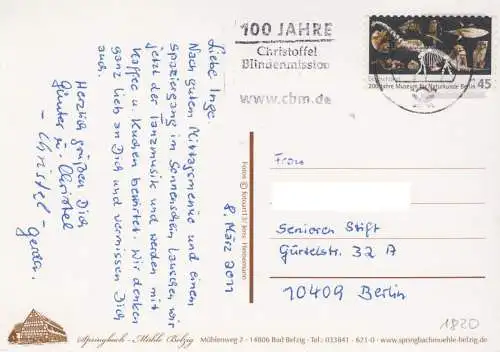 8. März 2011
Liebe Inge.
Nach gutem Mittagsmenue und einem
Spaziergang im Sonnenschein lauschen wir
jetzt der Tanzmusik und werden mit
Kaffee u. Kuchen bewirtet. Wir denken
ganz lieb an Dich und vermissen Dich
auch.
Herzlich grüßen Dich
Günter u. Christel
- Christel -
Gerda.
100 JAHRE
Christoffel
Blindenmission
www.cbm.de
Deutschland
200 Jahre Museum für Naturkunde Berlin
45
Frau
Senioren Stift
Gürtelstr. 32 A
10409 Berlin
1820
Fotos © fotoart13/Jens Hennemann
Springbach - Mühle Belzig
Mühlenweg 2 - 14806 Bad Belzig - Tel.: 033841 - 621-0 - www.springbachmuehle-belzig.de